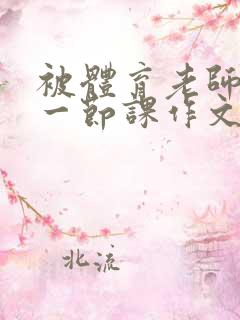 被體育老師
一節課作文
北流